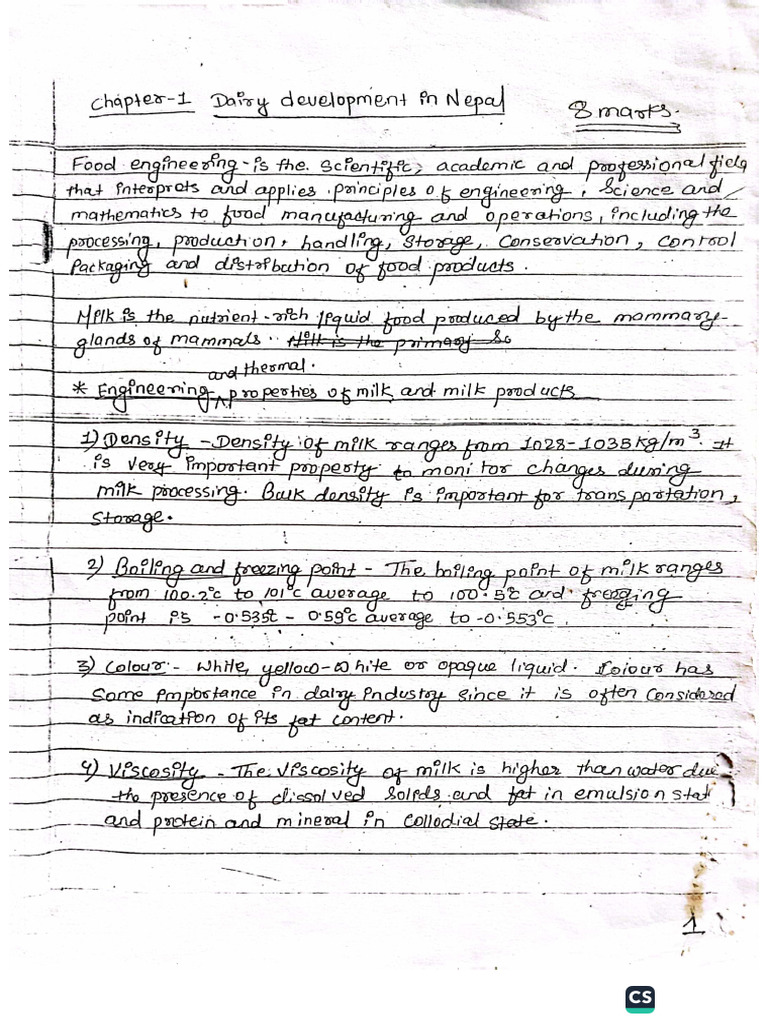 Chapter-1 Dairy development in Nepal 8 marks.
Food engineering - is the scientific, academic and professional field
that interprets and applies principles of engineering, science and
mathematics to food manufacturing and operations, including the
processing, production, handling, storage, conservation, control
Packaging and distribution of food products.
Milk is the nutrient-rich liquid food produced by the mammary-
glands of mammals. Milk is the primary So
and thermal.
* Engineering ^ properties of milk and milk products
1) Density - Density of milk ranges from 1028-1035 kg/m³. It
is very important property to monitor changes during
milk processing. Bulk density is important for transportation,
Storage.
2) Boiling and freezing point - The boiling point of milk ranges
from 100.2°c to 101°c average to 100.5°c and freezing
point is -0.535°c - 0.59°c average to -0.553°c.
3) Colour - White, yellow-white or opaque liquid. Colour has
Some importance in dairy industry since it is often considered
as indication of its fat content.
4) Viscosity - The viscosity of milk is higher than water due
the presence of dissolved solids and fat in emulsion stat
and protein and mineral in collodial state.
1
CS